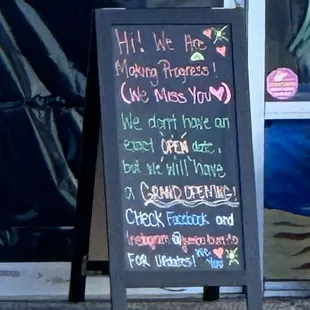 Hi! We Are
Making Progress!
(We Miss You)
We don't have an
exact OPEN date,
but we will have
a GRAND OPENING!
CHECK Facebook and
Instagram
FOR Updates! We
You